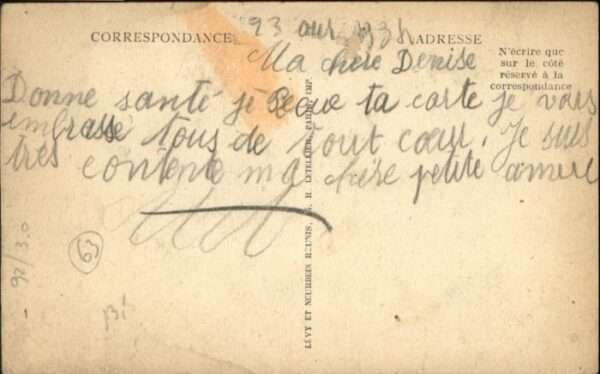 CORRESPONDANCE
ADRESSE
N'écrire que
sur le côté
réservé à la
correspondance
23
Ma chere Denise
Donne santé je ta carte je vous
embrasse tous de tout cœur. Je suis
très contente ma chère petite
LÉVY ET NEURDEIN RÉUNIS, PARIS, IMP.
63
92/3.0